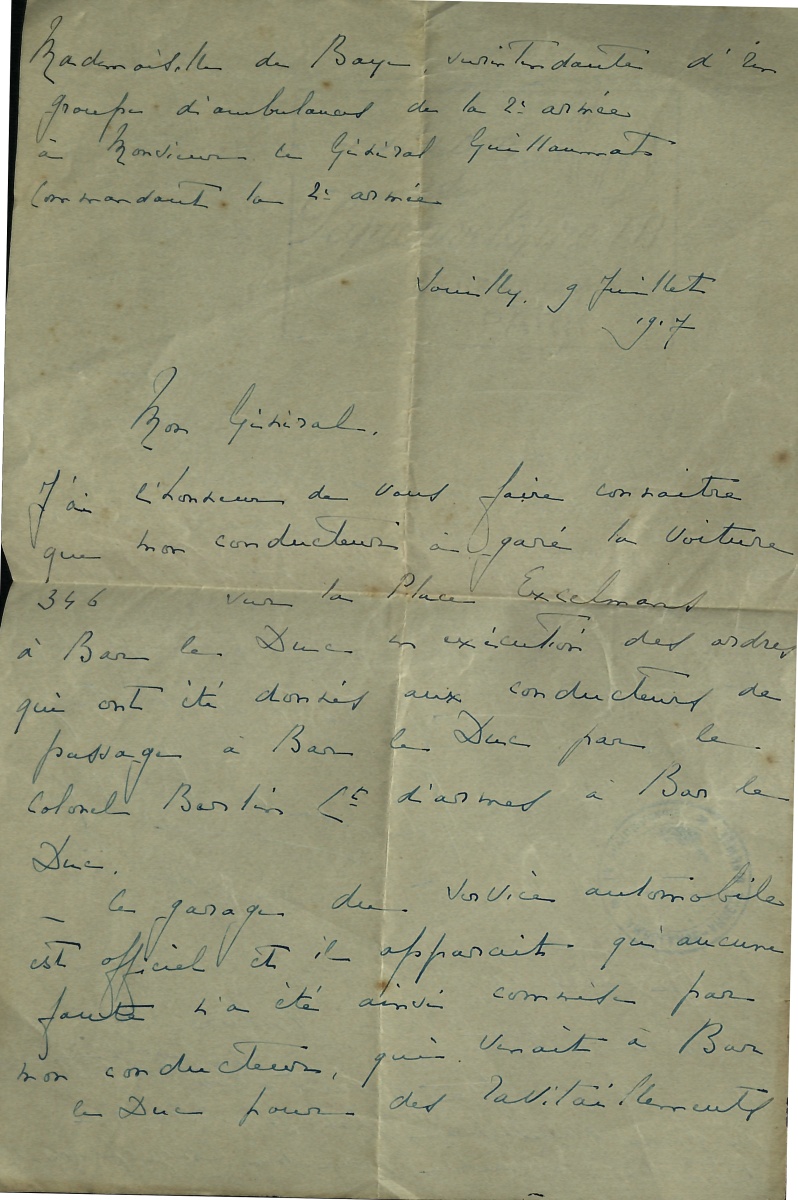 Mademoiselle de Baye, surintendante d'un
groupe d'ambulances de la 2e armée
à Monsieur le Général Guillaumat
Commandant la 2e armée
Souilly. 9 Juillet
1917
Mon Général.
J'ai l'honneur de vous faire connaitre
que mon conducteur a garé la voiture
346 sur la Place Exelmans
à Bar le Duc en exécution des ordres
qui ont été donnés aux conducteurs de
passage à Bar le Duc par le
Colonel Bertin Ct d'armes à Bar le
Duc.
_ le garage du service automobile
est officiel et il apparait qu'aucune
faute n'a été ainsi commise par
mon conducteur, qui venait à Bar
le Duc pour des ravitaillements